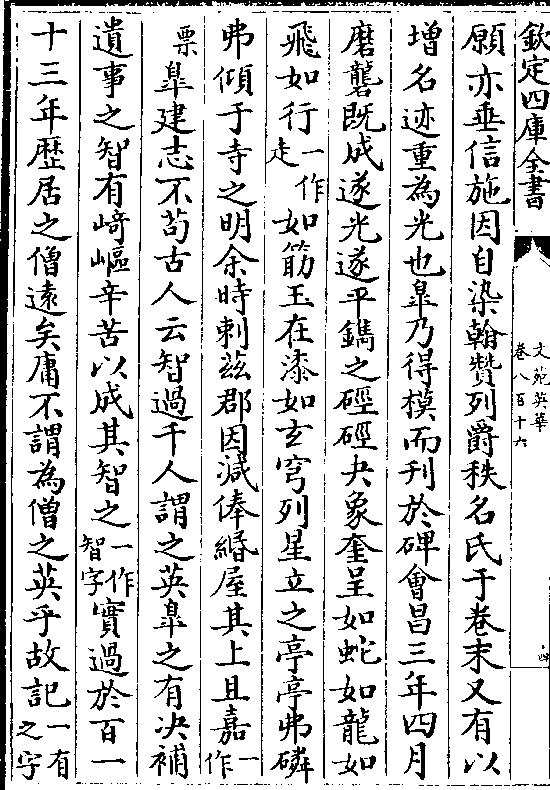 欽定四庫全書
文苑英華
卷八百十六
四
願亦垂信施因自染翰贊列爵秩名氏于卷末又有以
増名迹重為光也臯乃得模而刊於碑會昌三年四月
磨礱既成遂光遂平鐫之硜硜夬象奎呈如蛇如龍如
飛如行一作走如筋玉在漆如玄穹列星立之亭亭弗磷
弗傾于寺之明余時刺兹郡因減俸緡屋其上且嘉一作
票臯建志不苟古人云智過千人謂之英臯之有决補
遺事之智有﨑嶇辛苦以成其智之一作智字實過於百一
十三年歴居之僧逺矣庸不謂為僧之英乎故記一有之字